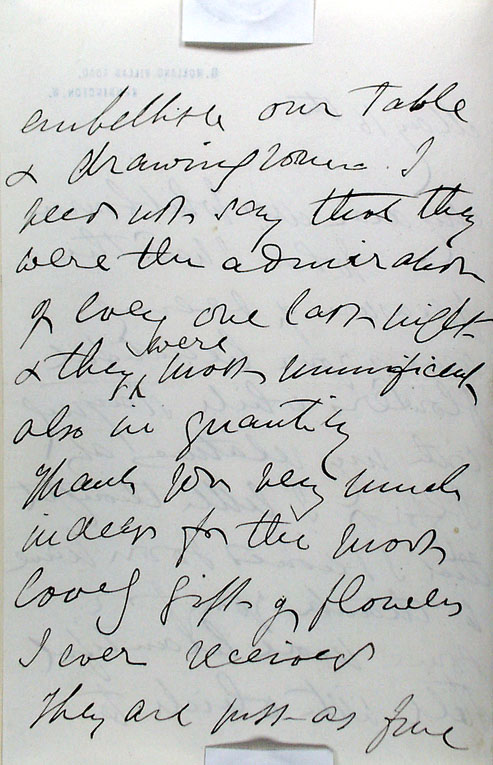 embellish our Table
& drawingroom. I
need not say that they
were the admiration
of every one last night
& they were most munificent
also in quantity
Thank you very much
indeed for the most
lovely gift of flowers
I ever received
They are just as fine